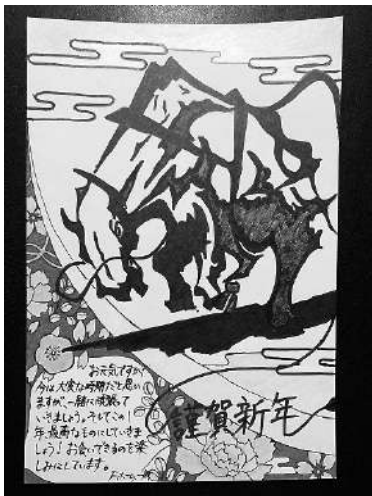 お元気ですか?
今は大変な時期だと思い
ますが、一緒に頑張って
いきましょう。そしてこの1
年、最高なものにしていきま
しょう!お会いできるのを楽
しみにしています。
謹賀新年